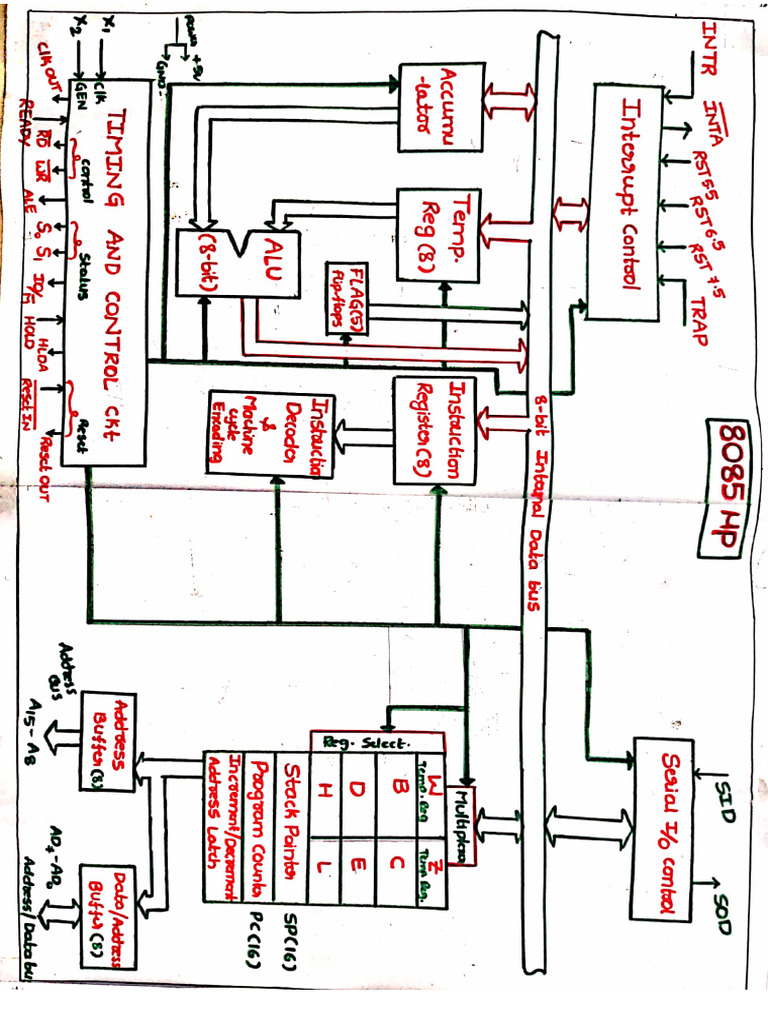 8085 MP
INTR
INTA
RST 5.5
RST 6.5
RST 7.5
TRAP
SID
SOD
Interrupt Control
Serial I/O control
8-bit Internal Data bus
Accumu
-lator
Temp.
Reg (8)
FLAG(5)
flip-flops
Instruction
Register(8)
Multiplexer
W
Temp. Reg
Z
Temp Reg.
B
C
D
E
H
L
Reg. Select.
Stack Pointer
SP(16)
Program Counter
PC(16)
Increment/Decrement
Address Latch
ALU
(8-bit)
Instruction
Decoder
&
Machine
cycle
Encoding
Power
+5V
GND
X1
X2
Clk
GEN
TIMING AND CONTROL CKt
Control
Status
Reset
Clk OUT
READY
RD
WR
ALE
S0
S1
IO/M
HOLD
HLDA
Reset IN
Reset OUT
Address
Buffer(8)
Data/Address
Buffer(8)
Address
BUS
A15-A8
AD7-AD0
Address/Data bus